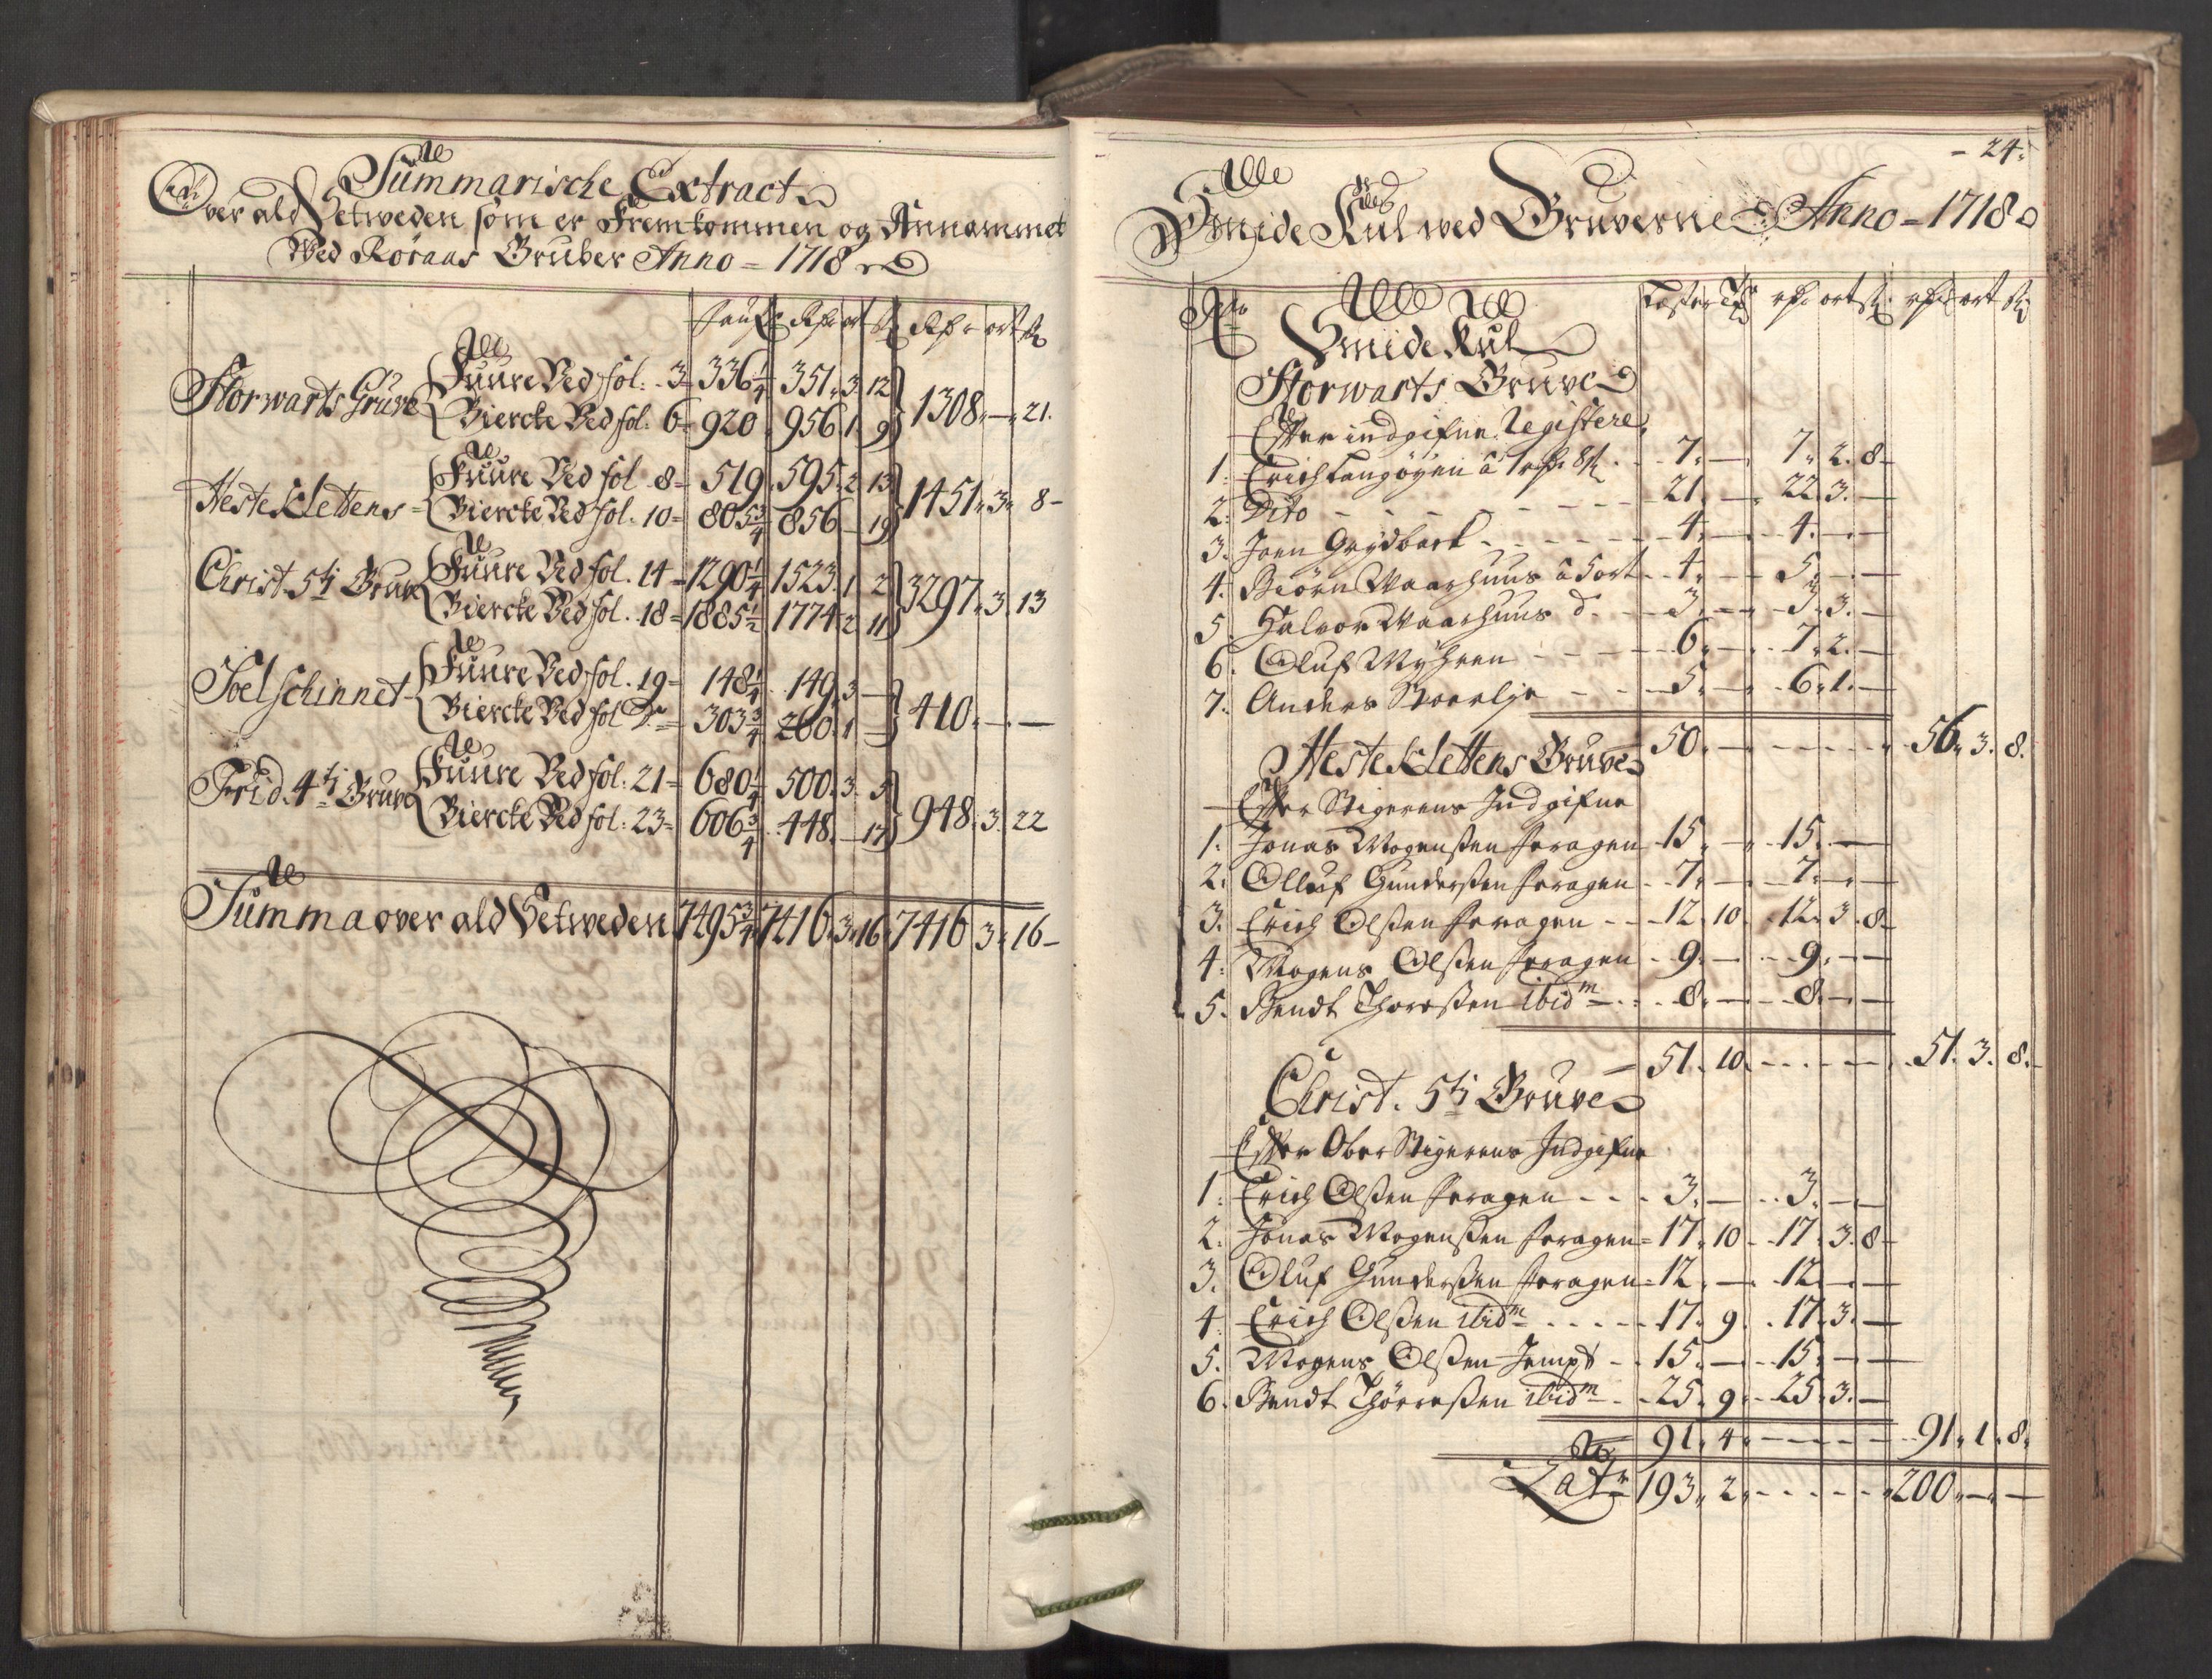 Summarische Extract
Over ald Setweden som er Fremkommen og Annammet
Ved Röraas Gruber Anno = 1718
Storwarts Gruve Fuure Ved fol: 3 = 336 1/4 351. 3 12
Biercke Ved fol. 6 = 920 956 1. 9 1308. — 21.
Hesteklettens = Fuure Ved fol 8 = 519. 595. 2 13
Biercke Ved fol. 10 = 805 3/4 856 — 19 1451. 3. 8 -
Christ. 5ti Gruve Fuure Ved fol. 14 = 1290 1/4 1523. 1 2
Biercke Ved fol. 18 = 1885 1/2 1774. 2 11 3297. 3. 13
Soelschinnet Fuure Ved fol. 19 = 148 1/4 149. 3 —
Biercke Ved fol Do = 303 3/4 260. 1 — 410. — —
Frid. 4ti Gruve Fuure Ved fol. 21 = 680 1/4 500. 3. 5
Biercke Ved fol. 23 = 606 3/4 448. — 17 948. 3. 22
Summa over ald Setweden 7495 3/4 7416. 3. 16. 7416 3. 16 -
- 24.
Smide Kul wed Gruverne Anno = 1718
No Smide Kul Læster Tr rdr ort s rdr ort s
Storwarts Gruve
Efter indgifne Registere
1. Erich Langøyen â 1 rdr 8 s . 7. — 7. 2. 8
2. Dito - - - 21. — 22. 3. —
3. Joen Grydbach - - - 4. — 4. — —
4. Biörn Waarhuus â 5 ort 4. — 5. — —
5. Halvor Waarhuus d. 3. — 3. 3. —
6. Oluf Myhren - - - 6. — 7. 2. —
7. Anders - - 5. — 6. 1. —
50. — - - - 56. 3. 8.
Hesteklettens Gruve
Efter Stigerens Indgifne
1. Jonas Mogenßen Foragen 15. — 15. —
2. Olluf Gunderßen Foragen 7. — 7. — —
3. Erich Olßen Foragen - - 12. 10. 12. 3. 8
4. Mogens Olßen Foragen 9. — 9. — —
5. Bendt Thoreßen ibidm . . 8. — 8. — —
51. 10. - - - 51. 3. 8.
Christ. 5ti Gruve
Efter Ober Stigerens Indgifne
1. Erich Olßen Foragen - - - 3. — 3. —
2. Jonas Mogenßen Foragen = 17. 10 - 17. 3. 8
3. Oluf Gunderßen Foragen = 12. — 12. — —
4. Erich Olßen ibidm . . . . 17. 9. 17. 3. —
5. Mogens Olßen Jempt - 15. — 15. — —
6. Bendt Thörreßen ibidm - 25. 9. 25. 3. —
91. 4. - - - 91. 1. 8.
Latr 193. 2. - - - 200. — —